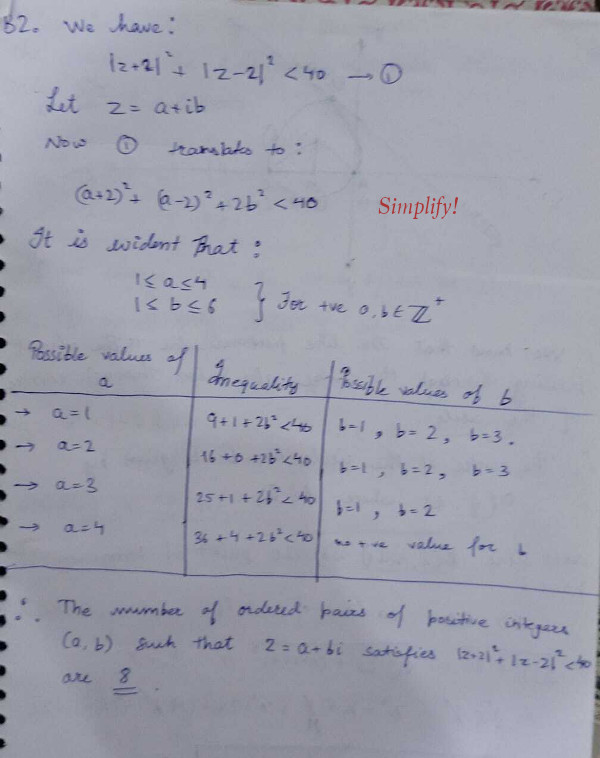 B2. We have:
|z+2|² + |z-2|² < 40 → ①
Let z = a+ib
Now ① translates to:
(a+2)² + (a-2)² + 2b² < 40
Simplify!
It is evident that:
1 ≤ a ≤ 4
1 ≤ b ≤ 6 } For +ve a, b ∈ ℤ⁺
Possible values of a | Inequality | Possible values of b
→ a=1 | 9+1+2b² < 40 | b=1, b=2, b=3.
→ a=2 | 16+0+2b² < 40 | b=1, b=2, b=3
→ a=3 | 25+1+2b² < 40 | b=1, b=2
→ a=4 | 36+4+2b² < 40 | no +ve value for b
∴ The number of ordered pairs of positive integers
(a, b) such that z = a+bi satisfies |z+2|² + |z-2|² < 40
are 8.